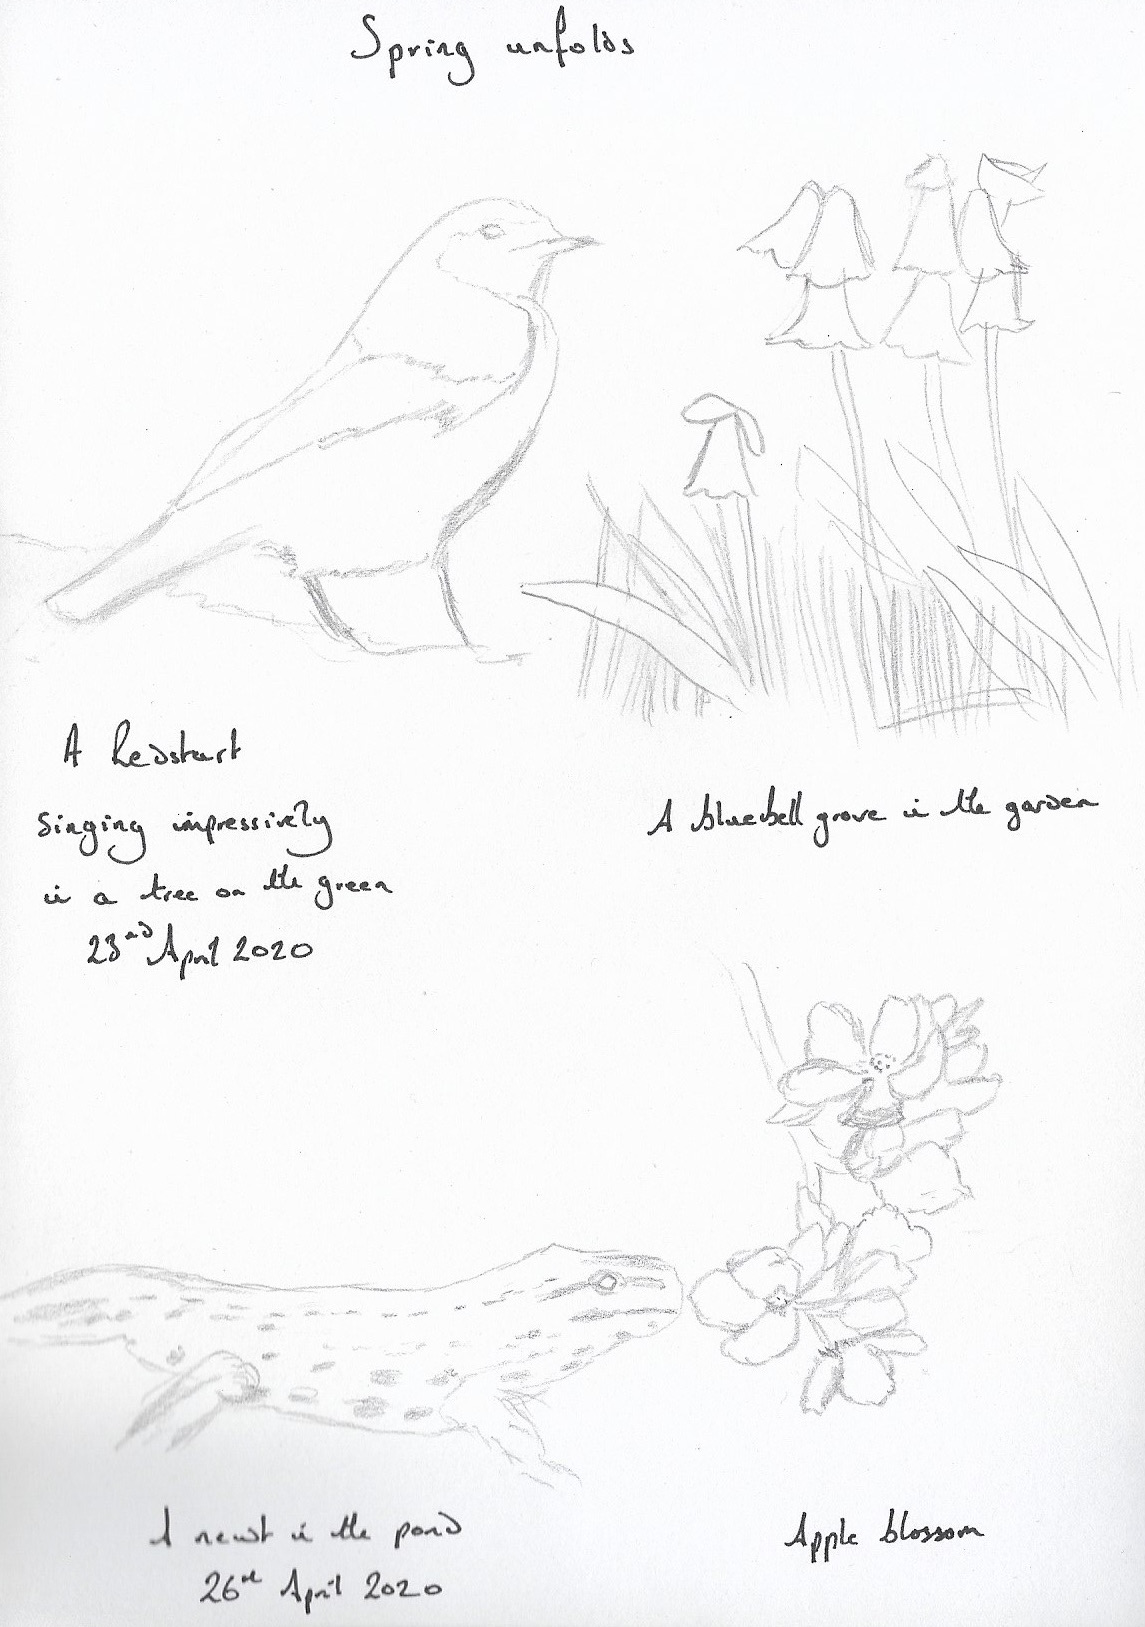 Spring unfolds
A Redstart
singing impressively
in a tree on the green
23rd April 2020
A bluebell grove in the garden
A newt in the pond
26th April 2020
Apple blossom